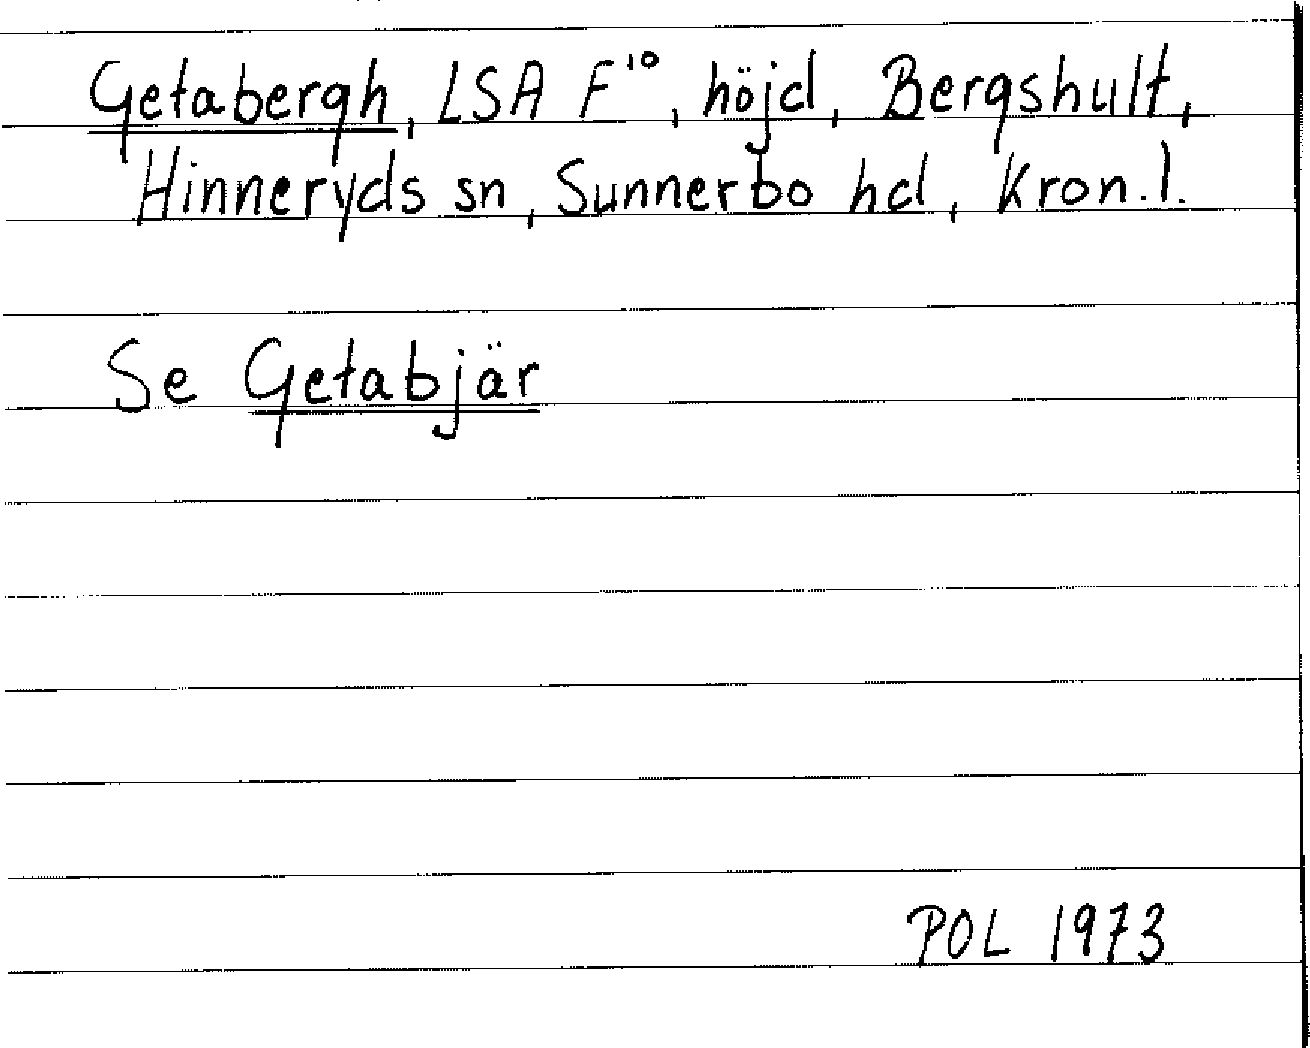 Getabergh, LSA F¹⁰, höjd, Bergshult,
Hinneryds sn, Sunnerbo hd, Kron.l.
Se Getabjär
POL 1973